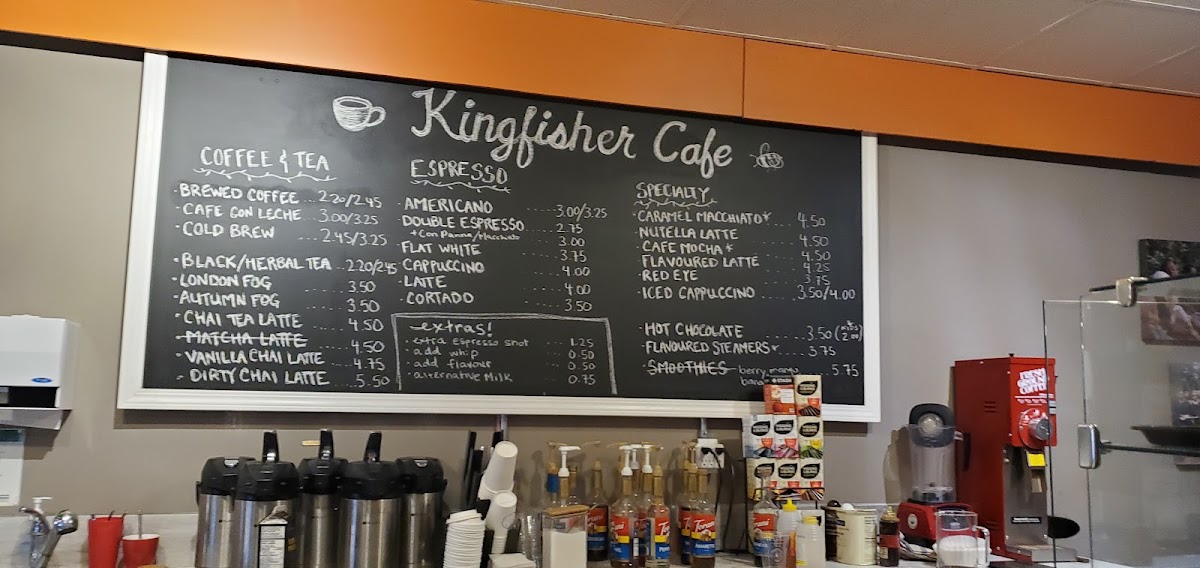 Kingfisher Cafe
COFFEE & TEA
· BREWED COFFEE ... 2.20/2.45
· CAFE CON LECHE ... 3.00/3.25
· COLD BREW ... 2.45/3.25
· BLACK/HERBAL TEA ... 2.20/2.45
· LONDON FOG .... 3.50
· AUTUMN FOG .... 3.50
· CHAI TEA LATTE .... 4.50
· MATCHA LATTE .... 4.50
· VANILLA CHAI LATTE .... 4.75
· DIRTY CHAI LATTE .... 5.50
ESPRESSO
· AMERICANO ..... 3.00/3.25
DOUBLE ESPRESSO .... 2.75
+ Con Panna/Macchiato .... 3.00
· FLAT WHITE .... 3.75
· CAPPUCCINO .... 4.00
· LATTE .... 4.00
· CORTADO .... 3.50
extras!
· extra espresso shot ... 1.25
· add whip ... 0.50
· add flavour ... 0.50
· alternative milk ... 0.75
SPECIALTY
· CARAMEL MACCHIATO* ... 4.50
· NUTELLA LATTE .... 4.50
· CAFE MOCHA* .... 4.50
· FLAVOURED LATTE .... 4.25
· RED EYE .... 3.75
· ICED CAPPUCCINO ..... 3.50/4.00
· HOT CHOCOLATE .... 3.50 (KIDS 2.00)
· FLAVOURED STEAMERS* .... 3.75
· SMOOTHIES - berry, mango ... 5.75
Torani
Torani
Torani
Torani